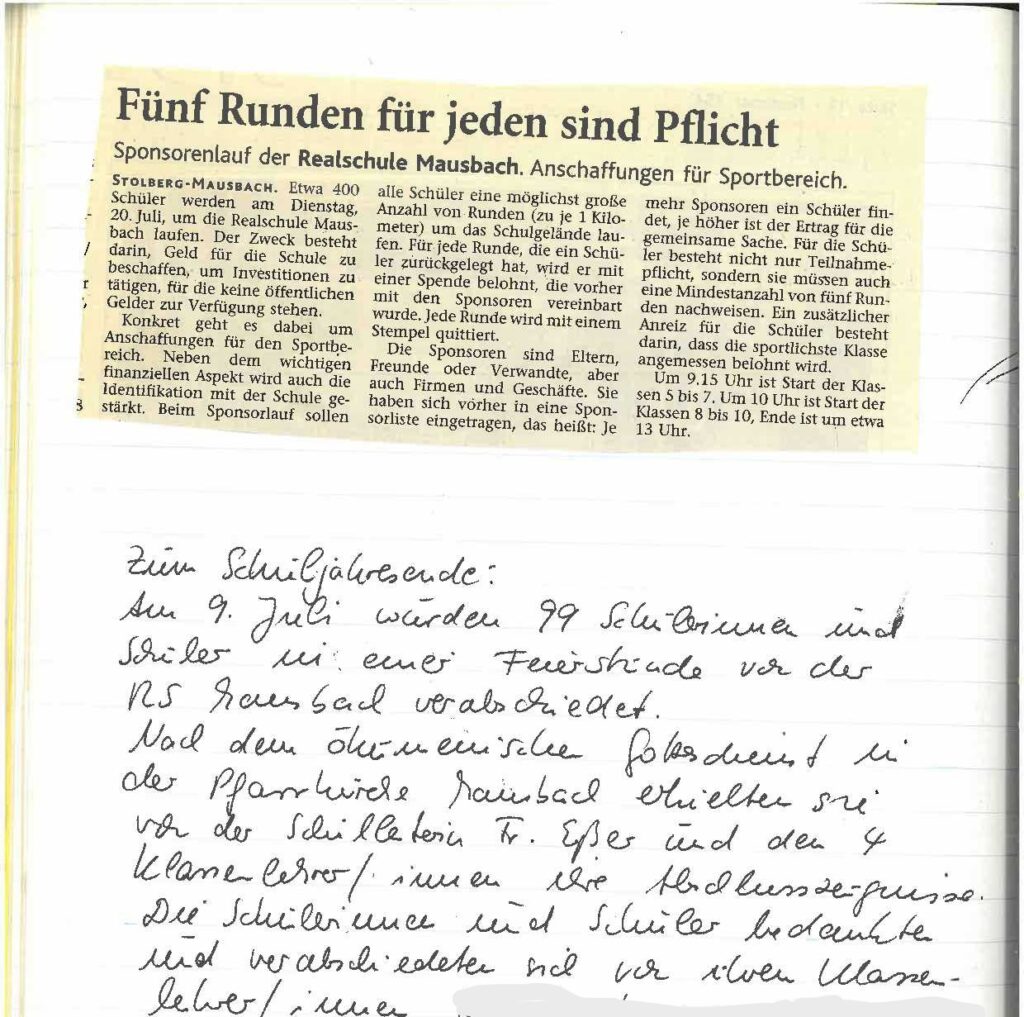 Fünf Runden für jeden sind Pflicht
Sponsorenlauf der Realschule Mausbach. Anschaffungen für Sportbereich.
STOLBERG-MAUSBACH. Etwa 400
Schüler werden am Dienstag,
20. Juli, um die Realschule Maus-
bach laufen. Der Zweck besteht
darin, Geld für die Schule zu
beschaffen, um Investitionen zu
tätigen, für die keine öffentlichen
Gelder zur Verfügung stehen.
Konkret geht es dabei um
Anschaffungen für den Sportbe-
reich. Neben dem wichtigen
finanziellen Aspekt wird auch die
Identifikation mit der Schule ge-
stärkt. Beim Sponsorlauf sollen
alle Schüler eine möglichst große
Anzahl von Runden (zu je 1 Kilo-
meter) um das Schulgelände lau-
fen. Für jede Runde, die ein Schü-
ler zurückgelegt hat, wird er mit
einer Spende belohnt, die vorher
mit den Sponsoren vereinbart
wurde. Jede Runde wird mit einem
Stempel quittiert.
Die Sponsoren sind Eltern,
Freunde oder Verwandte, aber
auch Firmen und Geschäfte. Sie
haben sich vorher in eine Spon-
sorliste eingetragen, das heißt: Je
mehr Sponsoren ein Schüler fin-
det, je höher ist der Ertrag für die
gemeinsame Sache. Für die Schü-
ler besteht nicht nur Teilnahme-
pflicht, sondern sie müssen auch
eine Mindestanzahl von fünf Run-
den nachweisen. Ein zusätzlicher
Anreiz für die Schüler besteht
darin, dass die sportlichste Klasse
angemessen belohnt wird.
Um 9.15 Uhr ist Start der Klas-
sen 5 bis 7. Um 10 Uhr ist Start der
Klassen 8 bis 10, Ende ist um etwa
13 Uhr.
Zum Schuljahresende:
Am 9. Juli wurden 99 Schülerinnen und
Schüler in einer Feierstunde von der
RS Mausbach verabschiedet.
Nach dem ökumenischen Gottesdienst in
der Pfarrkirche Mausbach erhielten sie
von der Schulleiterin Fr. Eßer und den 4
Klassenlehrer/innen ihre Abschlusszeugnisse.
Die Schülerinnen und Schüler bedankten
und verabschiedeten sich von ihren Klassen-
lehrer/innen